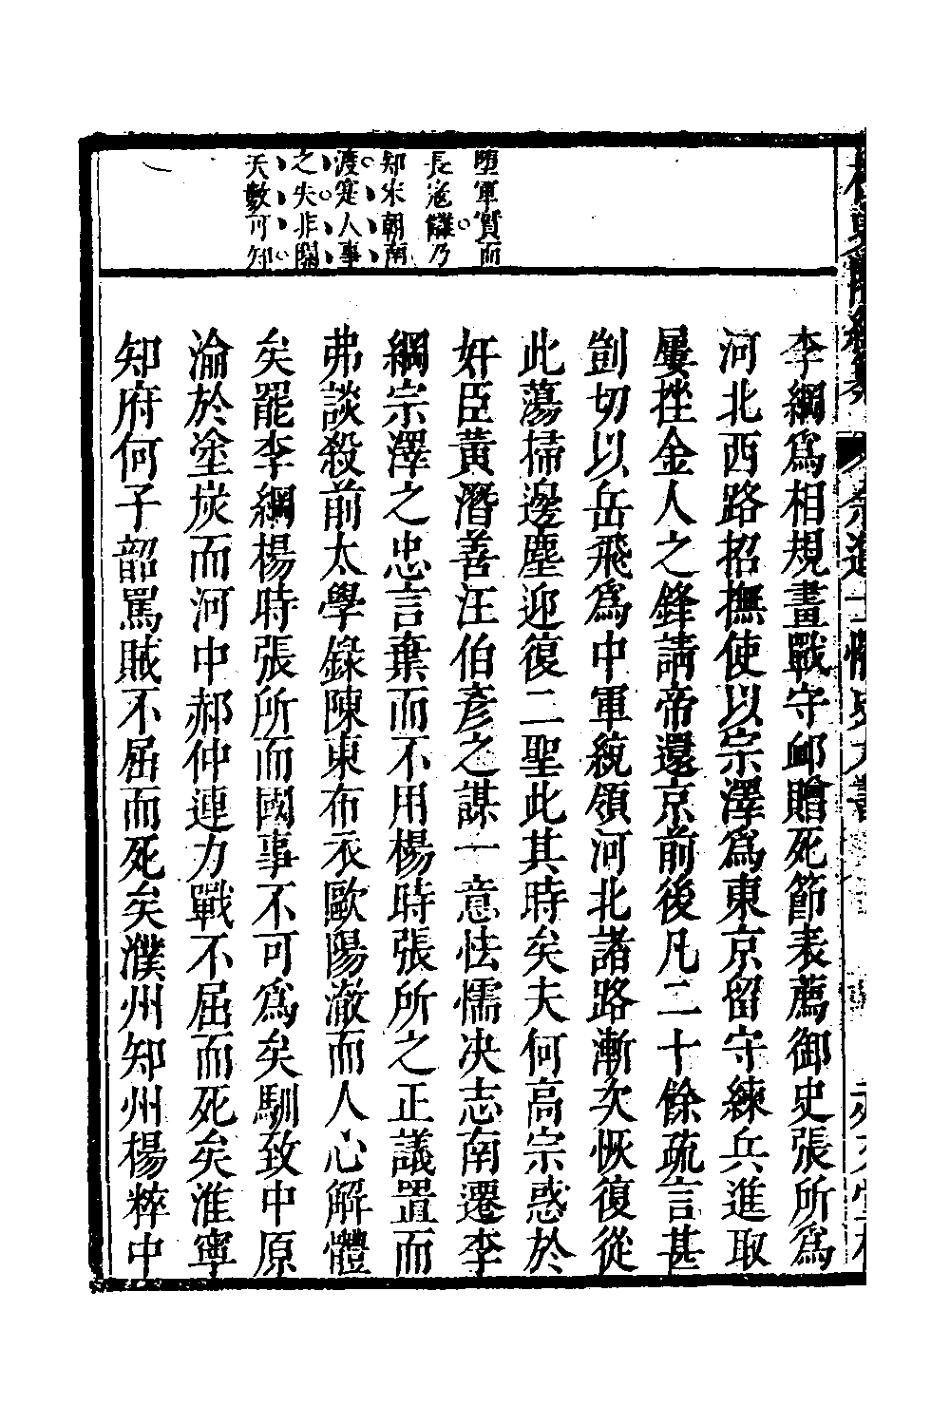 墮軍實而
長寇讎乃
知宋朝南
渡寔人事
之失非關
天數可知
李綱爲相規畫戰守卹贈死節表薦御史張所爲
河北西路招撫使以宗澤爲東京留守練兵進取
屢挫金人之鋒請帝還京前後凡二十餘疏言甚
剴切以岳飛爲中軍統領河北諸路漸次恢復從
此蕩掃邊塵迎復二聖此其時矣夫何高宗惑於
奸臣黃潛善汪伯彥之謀一意怯懦决志南遷李
綱宗澤之忠言棄而不用楊時張所之正議置而
弗談殺前太學錄陳東布衣歐陽澈而人心解體
矣罷李綱楊時張所而國事不可爲矣馴致中原
淪於塗炭而河中郝仲連力戰不屈而死矣淮寧
知府何子韶罵賊不屈而死矣濮州知州楊粹中